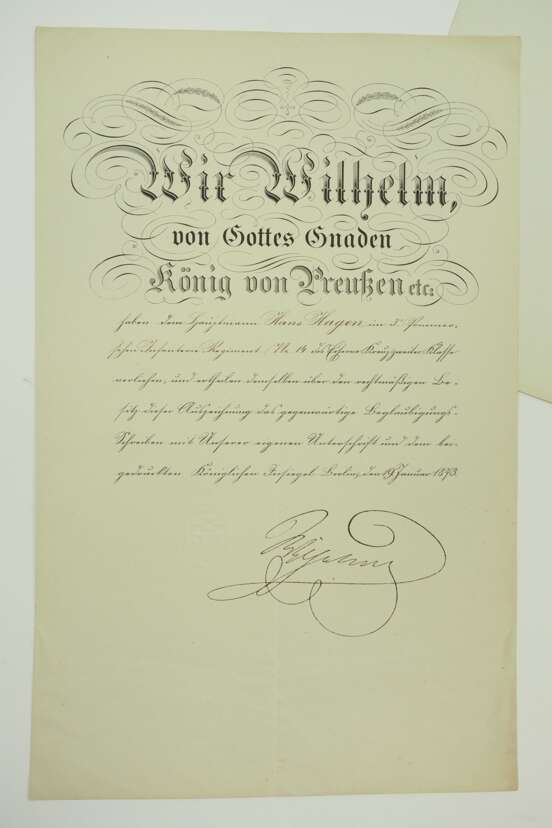 Wir Wilhelm,
von Gottes Gnaden
König von Preußen etc:
haben dem Hauptmann Hans Hagen im 3. Pommer-
schen Infanterie Regiment № 14 das Eiserne Kreuz zweiter Klasse
verliehen, und ertheilen demselben über den rechtmäßigen Be-
sitz dieser Auszeichnung das gegenwärtige Beglaubigungs-
Schreiben mit Unserer eigenen Unterschrift und dem bei-
gedruckten Königlichen Insiegel. Berlin, den 19. Januar 1873.
Wilhelm